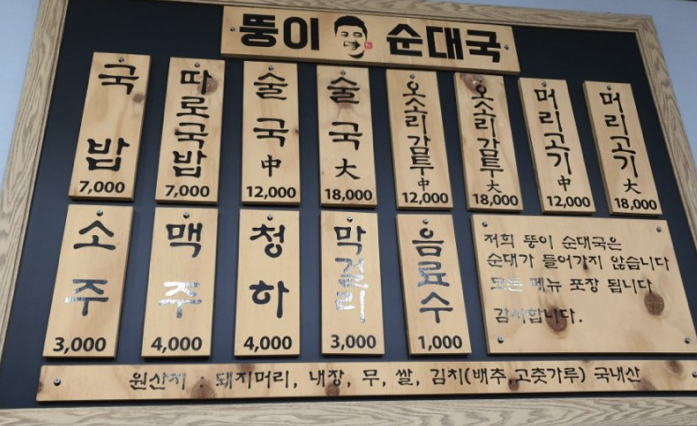 뚱이 순대국
국밥 7,000
따로국밥 7,000
술국 中 12,000
술국 大 18,000
오소리감투 中 12,000
오소리감투 大 18,000
머리고기 中 12,000
머리고기 大 18,000
소주 3,000
맥주 4,000
청하 4,000
막걸리 3,000
음료수 1,000
저희 뚱이 순대국은
순대가 들어가지 않습니다
모든 메뉴 포장 됩니다
감사합니다.
원산지 : 돼지머리, 내장, 무, 쌀, 김치(배추,고춧가루) 국내산